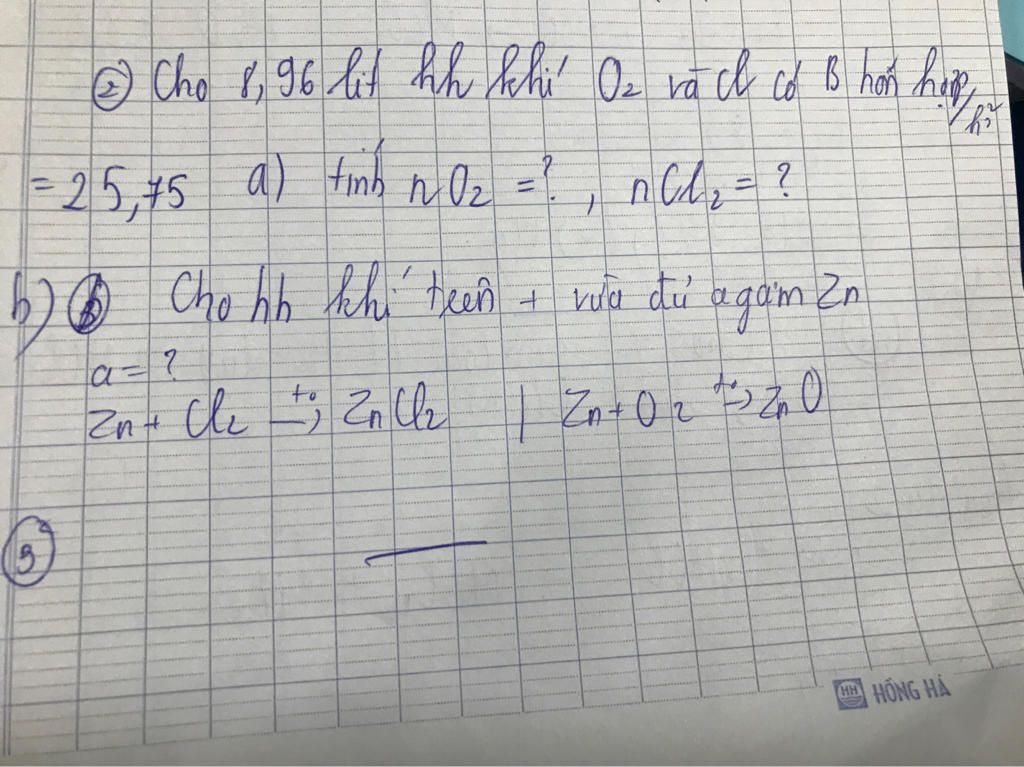 ② Cho 8,96 lit hh khí O₂ và Cl có B hỗn hợp/h²
= 25,75 a) tính nO₂ = ?, nCl₂ = ?
b) Cho hh khí treen + vừa đủ a gam Zn
a = ?
Zn + Cl₂ t°→ ZnCl₂ | Zn + O₂ t°→ ZnO
③
HH HỒNG HÀ